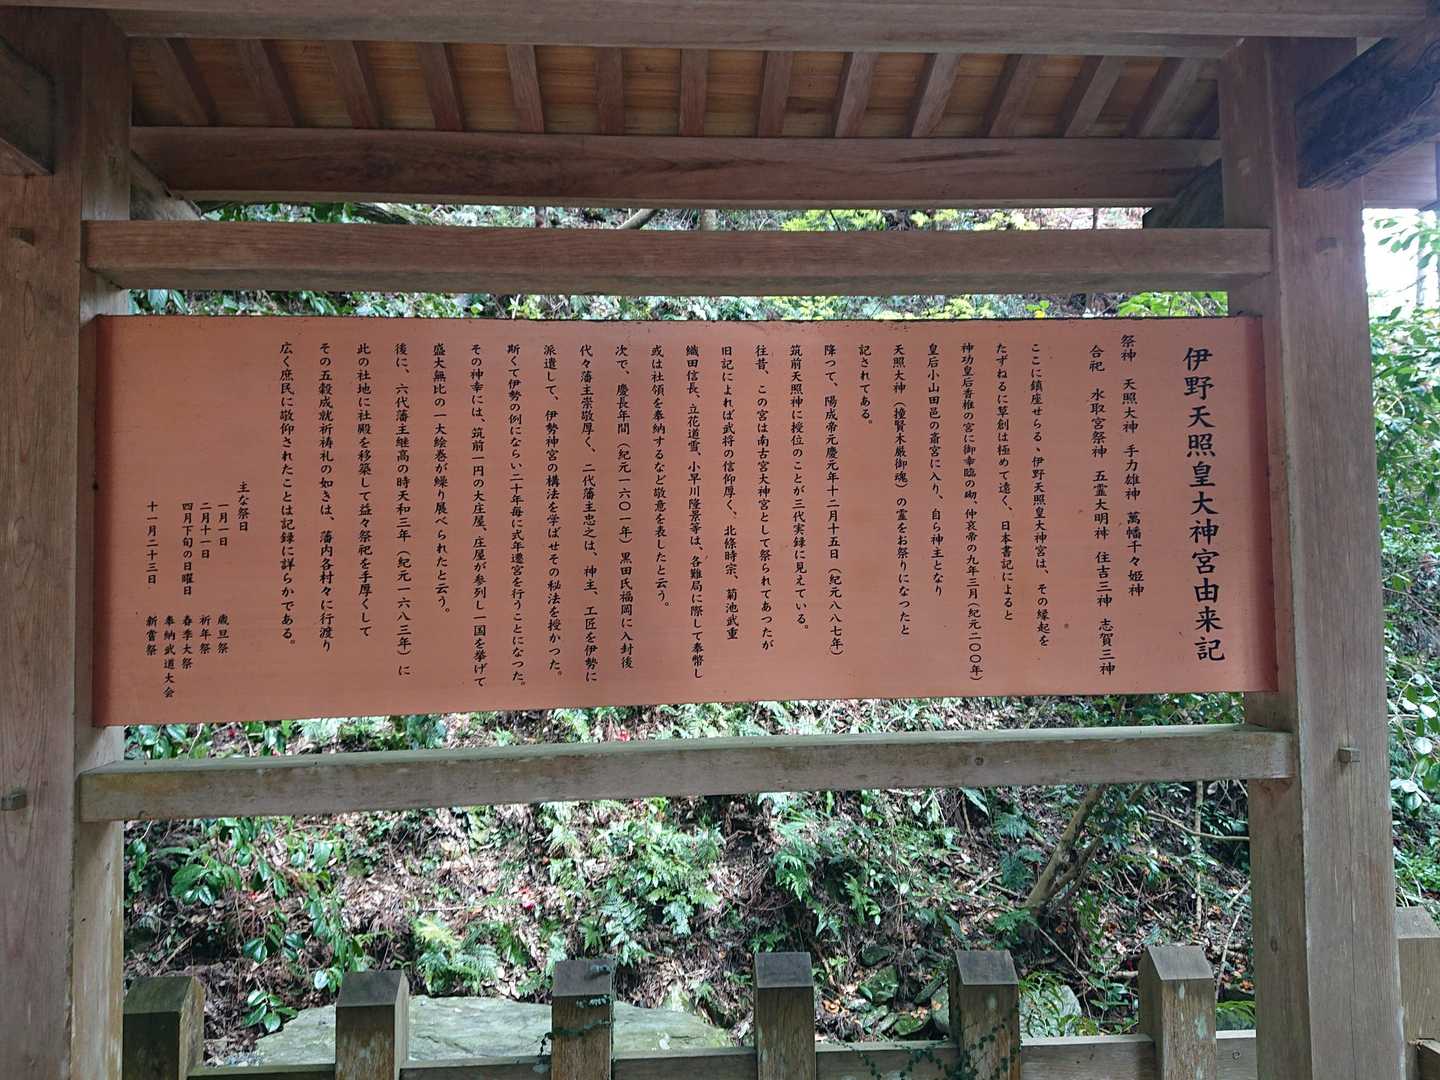 伊野天照皇大神宮由来記
祭神　天照大神　手力雄神　萬幡千々姫神
合祀　水取宮祭神　五霊大明神　住吉三神　志賀三神
ここに鎮座せらる、伊野天照皇大神宮は、その縁起を
たずねるに草創は極めて遠く、日本書記によると
神功皇后香椎の宮に御幸臨の砌、仲哀帝の九年三月（紀元二〇〇年）
皇后小山田邑の斎宮に入り、自ら神主となり
天照大神（撞賢木厳御魂）の霊をお祭りになったと
記されてある。
降つて、陽成帝元慶元年十二月十五日（紀元八八七年）
筑前天照神に授位のことが三代実録に見えている。
往昔、この宮は南古宮大神宮として祭られてあったが
旧記によれば武将の信仰厚く、北條時宗、菊池武重
織田信長、立花道雪、小早川隆景等は、各難局に際して奉幣し
或は社領を奉納するなど敬意を表したと云う。
次で、慶長年間（紀元一六〇一年）黒田氏福岡に入封後
代々藩主崇敬厚く、二代藩主忠之は、神主、工匠を伊勢に
派遣して、伊勢神宮の構法を学ばせその秘法を授かつた。
斯くて伊勢の例にならい二十年毎に式年遷宮を行うことになつた。
その神幸には、筑前一円の大庄屋、庄屋が参列し一国を挙げて
盛大無比の一大絵巻が繰り展べられたと云う。
後に、六代藩主継高の時天和三年（紀元一六八三年）に
此の社地に社殿を移築して益々祭祀を手厚くして
その五穀成就祈祷礼の如きは、藩内各村々に行渡り
広く庶民に敬仰されたことは記録に詳らかである。
主な祭日
一月一日　歳旦祭
二月十一日　祈年祭
四月下旬の日曜日　春季大祭
奉納武道大会
十一月二十三日　新嘗祭